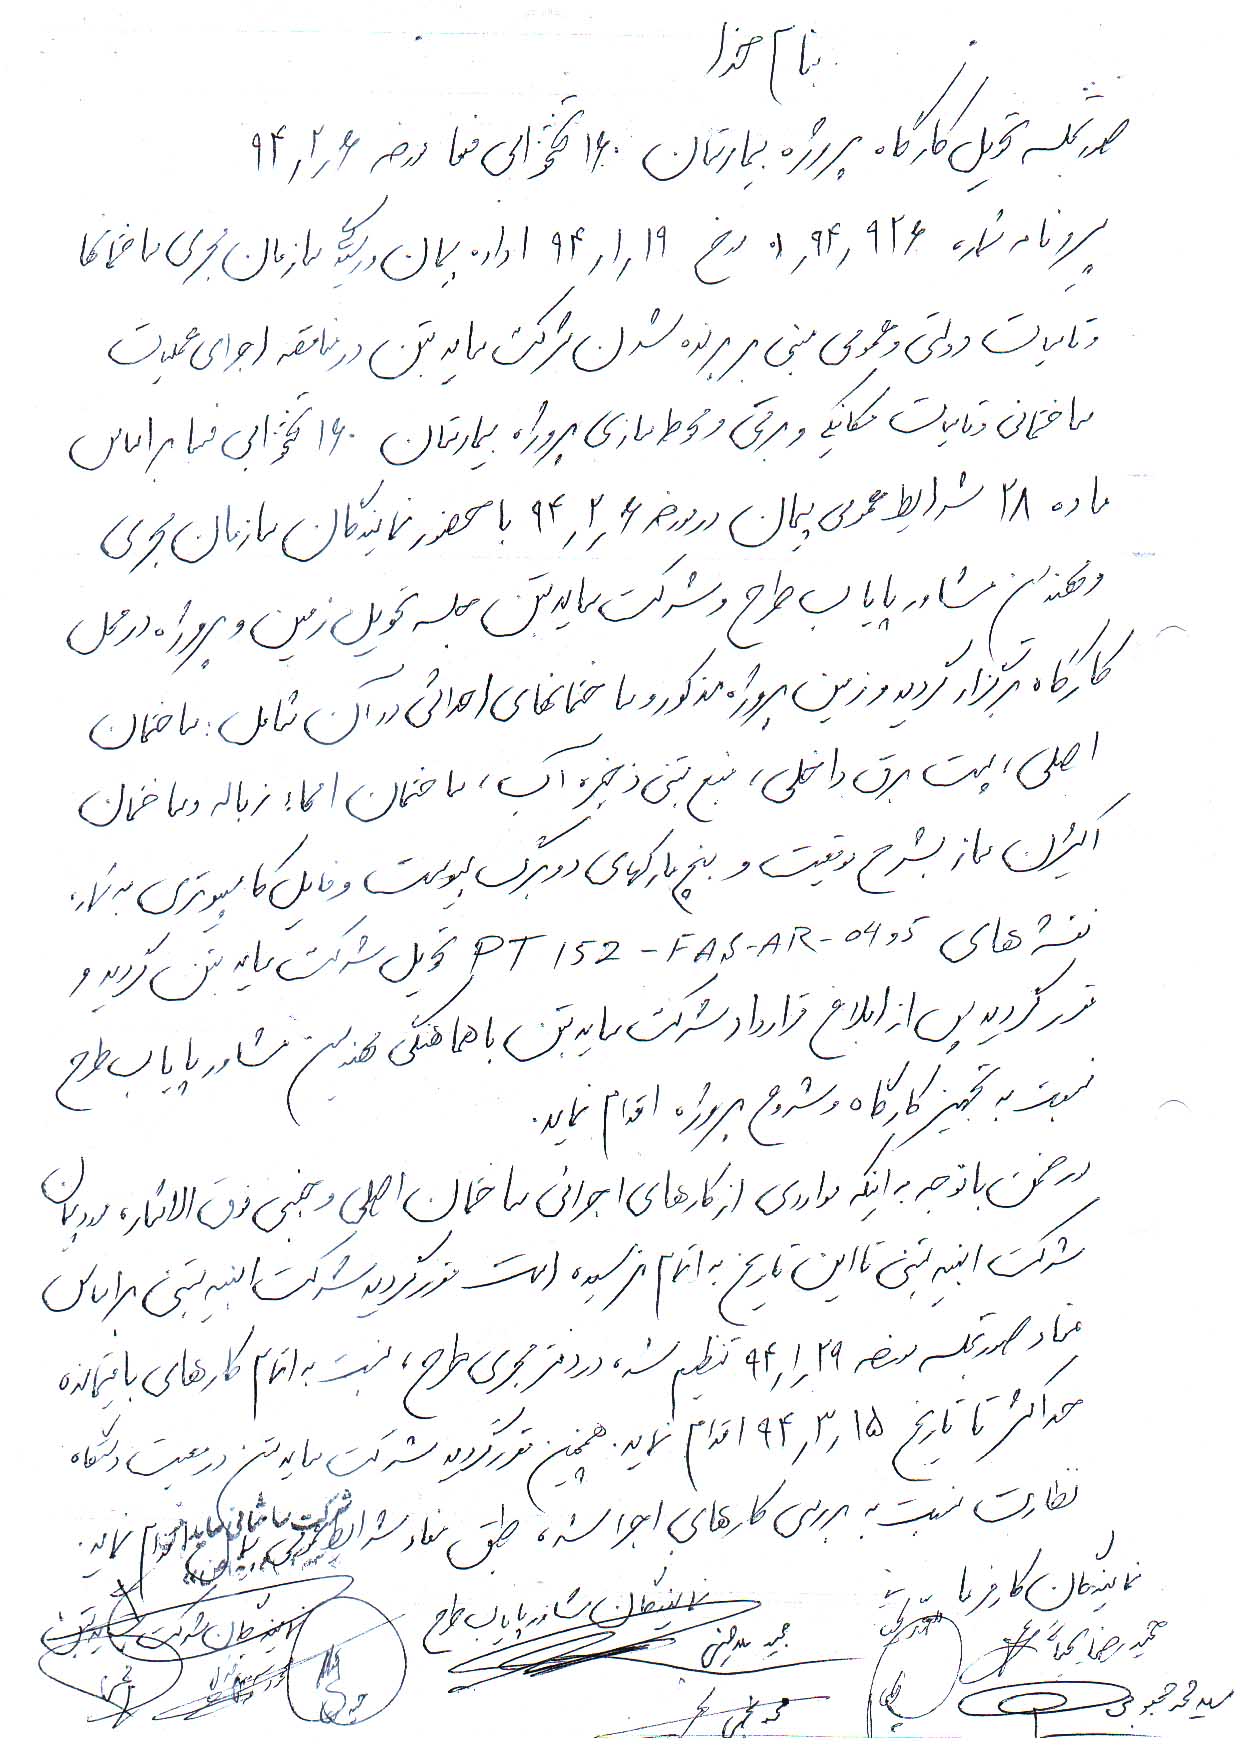 بنام خدا
صورتجلسه تحویل کارگاه پروژه بیمارستان ۱۶۰ تختخوابی فسا مورخه ۹۴٫۲٫۶
پیرو نامه شماره ۰۱٫۹۴٫۹۲۶ مورخ ۹۴٫۱٫۱۹ اداره پیمان و رسیدگی سازمان مجری ساختمانها
و تاسیسات دولتی و عمومی مبنی بر برنده شدن شرکت ساید بتن در مناقصه اجرای عملیات
ساختمانی و تاسیسات مکانیکی و برقی و محوطه سازی پروژه بیمارستان ۱۶۰ تختخوابی فسا براساس
ماده ۲۸ شرایط عمومی پیمان در مورخه ۹۴٫۲٫۶ با حضور نمایندگان سازمان مجری
و مهندسین مشاور پایاب طرح و شرکت ساید بتن جلسه تحویل زمین و پروژه در محل
کارگاه برگزار گردید و زمین پروژه مذکور و ساختمانهای احداثی در آن شامل : ساختمان
اصلی ، پست برق داخلی ، منبع بتنی ذخیره آب ، ساختمان امحاء زباله و ساختمان
اکسیژن ساز بشرح موقعیت و بنچ مارکهای دو برگ پیوست و فایل کامپیوتری به شماره
نقشه های PT 152 - FAS-AR-04,05 تحویل شرکت ساید بتن گردید و
مقرر گردید پس از ابلاغ قرارداد شرکت ساید بتن با هماهنگی مهندسین مشاور پایاب طرح
نسبت به تجهیز کارگاه و شروع پروژه اقدام نماید.
در ضمن با توجه به اینکه مواردی از کارهای اجرائی ساختمان اصلی و جنبی فوق الاشاره در پیمان
شرکت ابنیه بتنی تا این تاریخ به اتمام نرسیده است مقرر گردید شرکت ابنیه بتنی براساس
مفاد صورتجلسه مورخه ۹۴٫۱٫۲۹ تنظیم شده در دفتر مجری طرح ، نسبت به اتمام کارهای باقیمانده
حداکثر تا تاریخ ۹۴٫۳٫۱۵ اقدام نماید. همچنین مقرر گردید شرکت ساید بتن در معیت دستگاه
نظارت نسبت به بررسی کارهای اجرا شده طبق مفاد شرایط عمومی پیمان اقدام نماید.
شرکت ساختمانی ساید بتن
نمایندگان کارفرما
نمایندگان مشاور پایاب طرح
نمایندگان شرکت ساید بتن